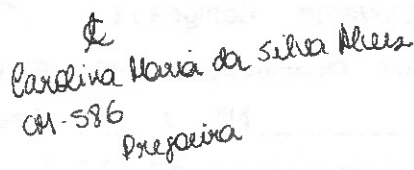 Carolina Maria da Silva Alves
CM-586
Pregoeira